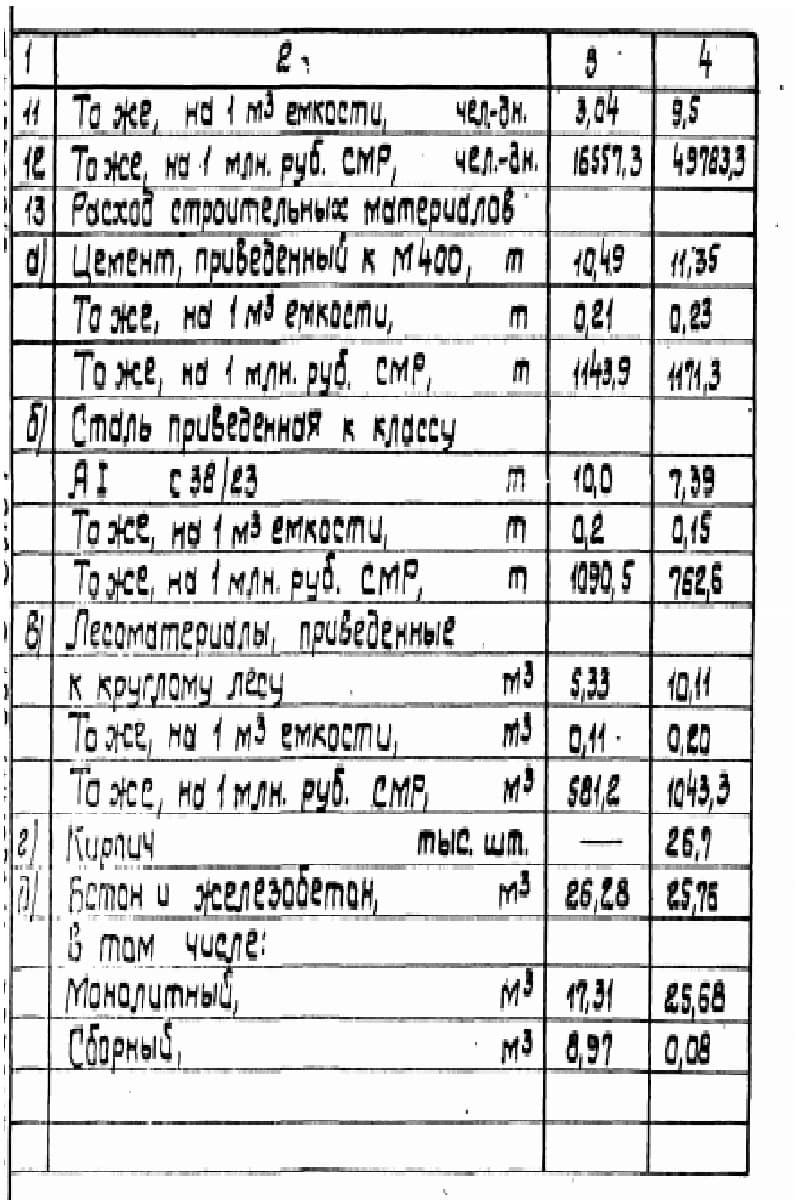 1 2 3 4
11 То же, на 1 м³ емкости, чел.-дн. 3,04 9,5
12 То же, на 1 млн. руб. СМР, чел.-дн. 16557,3 49783,3
13 Расход строительных материалов
а) Цемент, приведенный к М400, т 10,49 11,35
То же, на 1 м³ емкости, т 0,21 0,23
То же, на 1 млн. руб. СМР, т 1143,9 1171,3
б) Сталь приведенная к классу
А I с 38/23 т 10,0 7,39
То же, на 1 м³ емкости, т 0,2 0,15
То же, на 1 млн. руб. СМР, т 1090,5 762,6
в) Лесоматериалы, приведенные
к круглому лесу м³ 5,33 10,11
То же, на 1 м³ емкости, м³ 0,11 0,20
То же, на 1 млн. руб. СМР, м³ 581,2 1043,3
г) Кирпич тыс. шт. — 26,7
д) Бетон и железобетон, м³ 26,28 25,76
В том числе:
Монолитный, м³ 17,31 25,68
Сборный, м³ 8,97 0,08